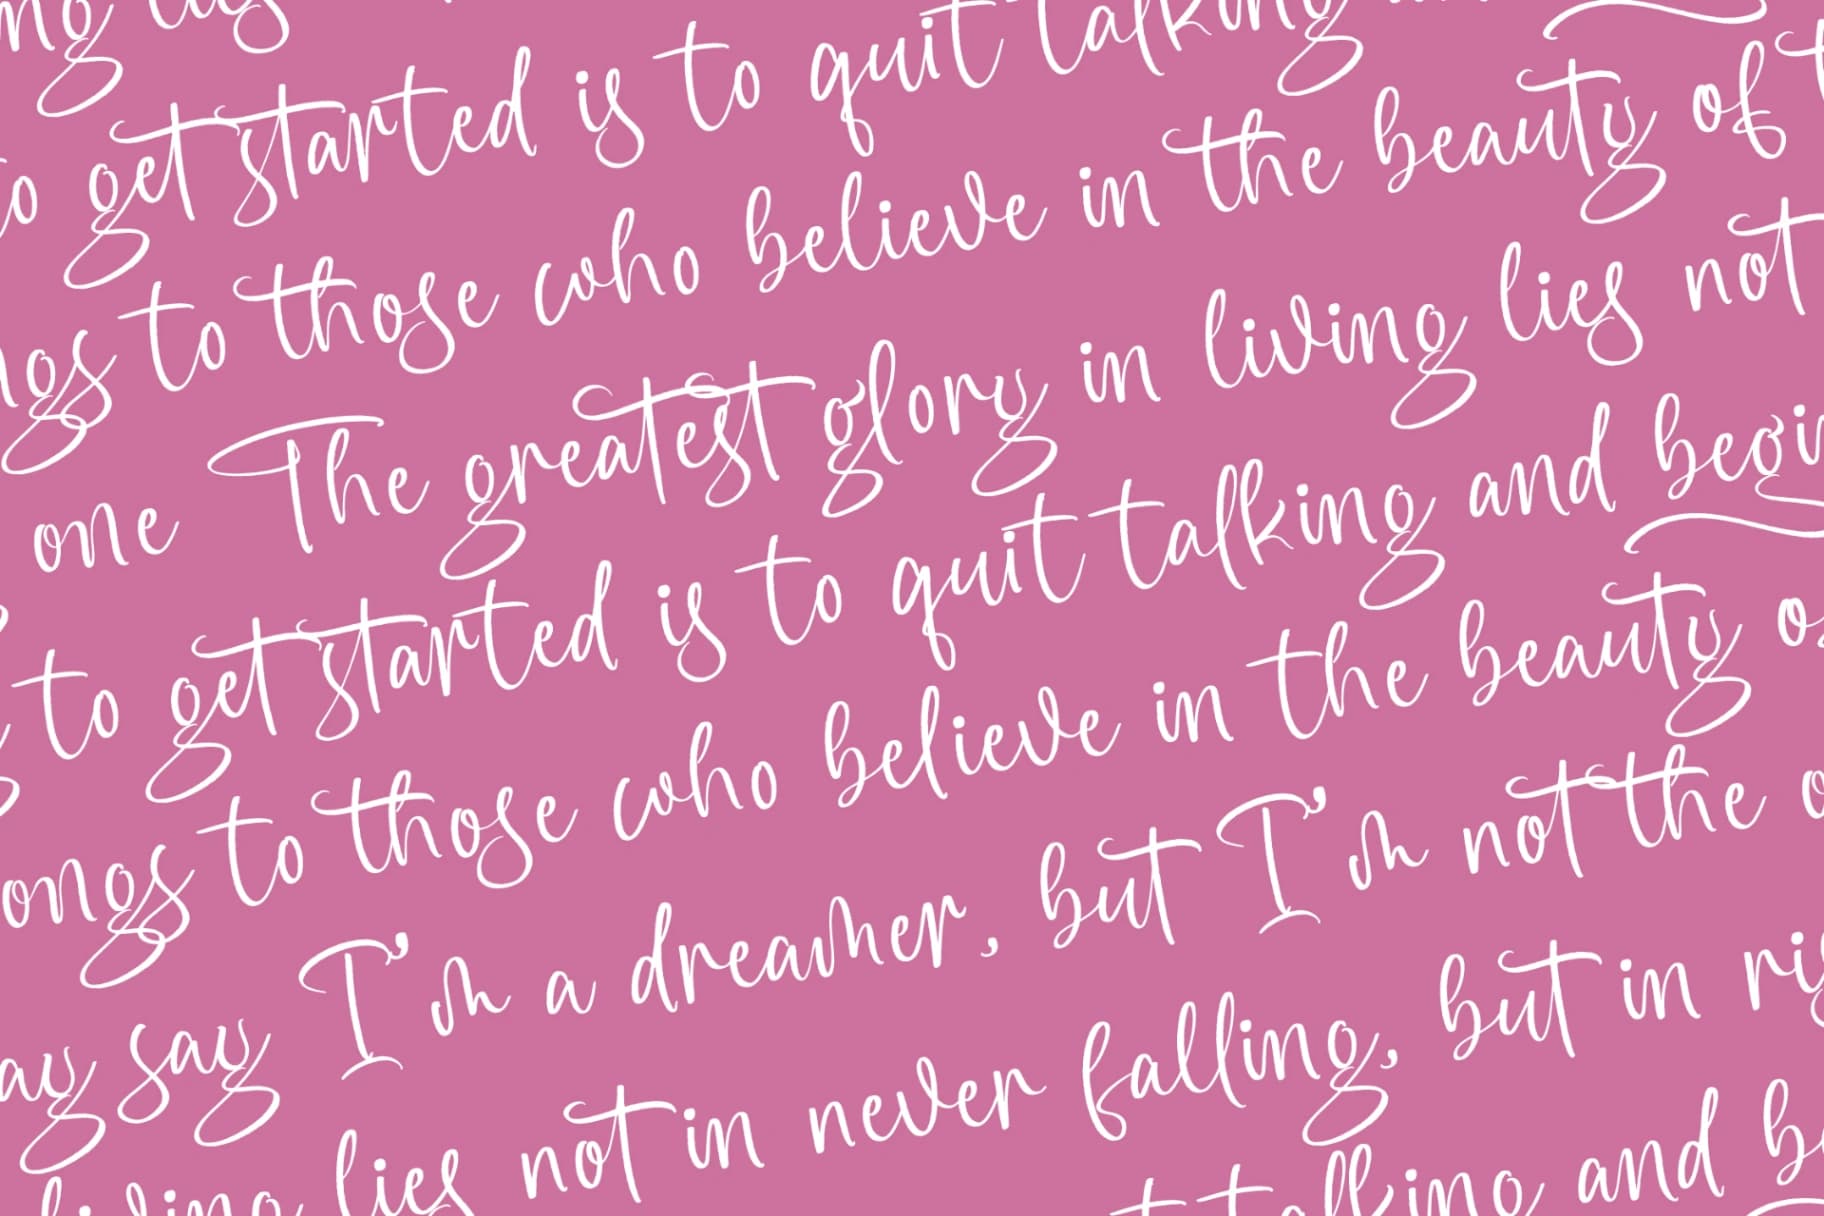 to get started is to quit talking
to those who believe in the beauty of
one The greatest glory in living lies not
to get started is to quit talking and
to those who believe in the beauty
say I'm a dreamer, but I'm not the
lies not in never falling, but in
talking and